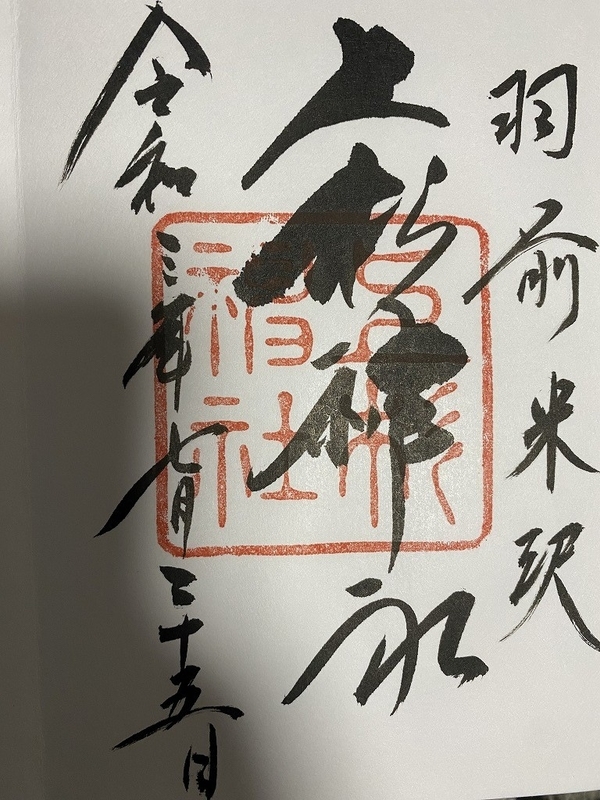 羽前米沢
上杉神社
上杉
神社
令和三年七月二十五日